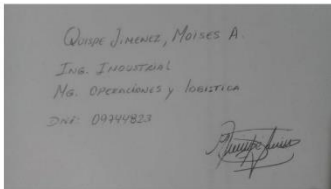 Quispe Jimenez, Moises A.
Ing. Industrial
Mg. Operaciones y logistica
DNI: 09744823